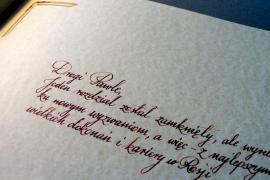 Drogi Pawle,
Jeden rozdział został zamknięty, ale wyru
ku nowym wyzwaniom, a więc – z najlepszym
wielkich dokonań i kariery w Rosji